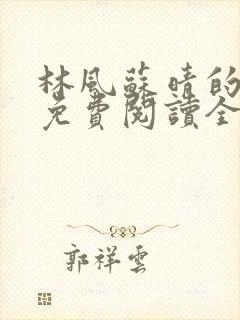 林風蘇晴的
免費閱讀全
郭祥雲